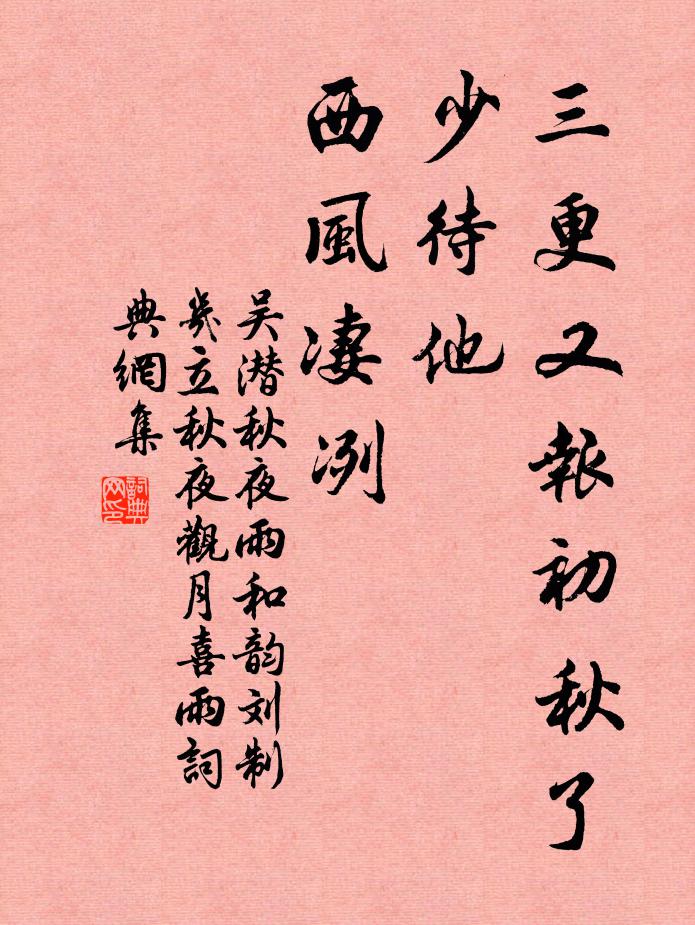 三更又報初秋了
少待他
西風凄冽
吴潜秋夜雨和韵刘制
幾立秋夜觀月喜雨詞
典網集
詞典
网印